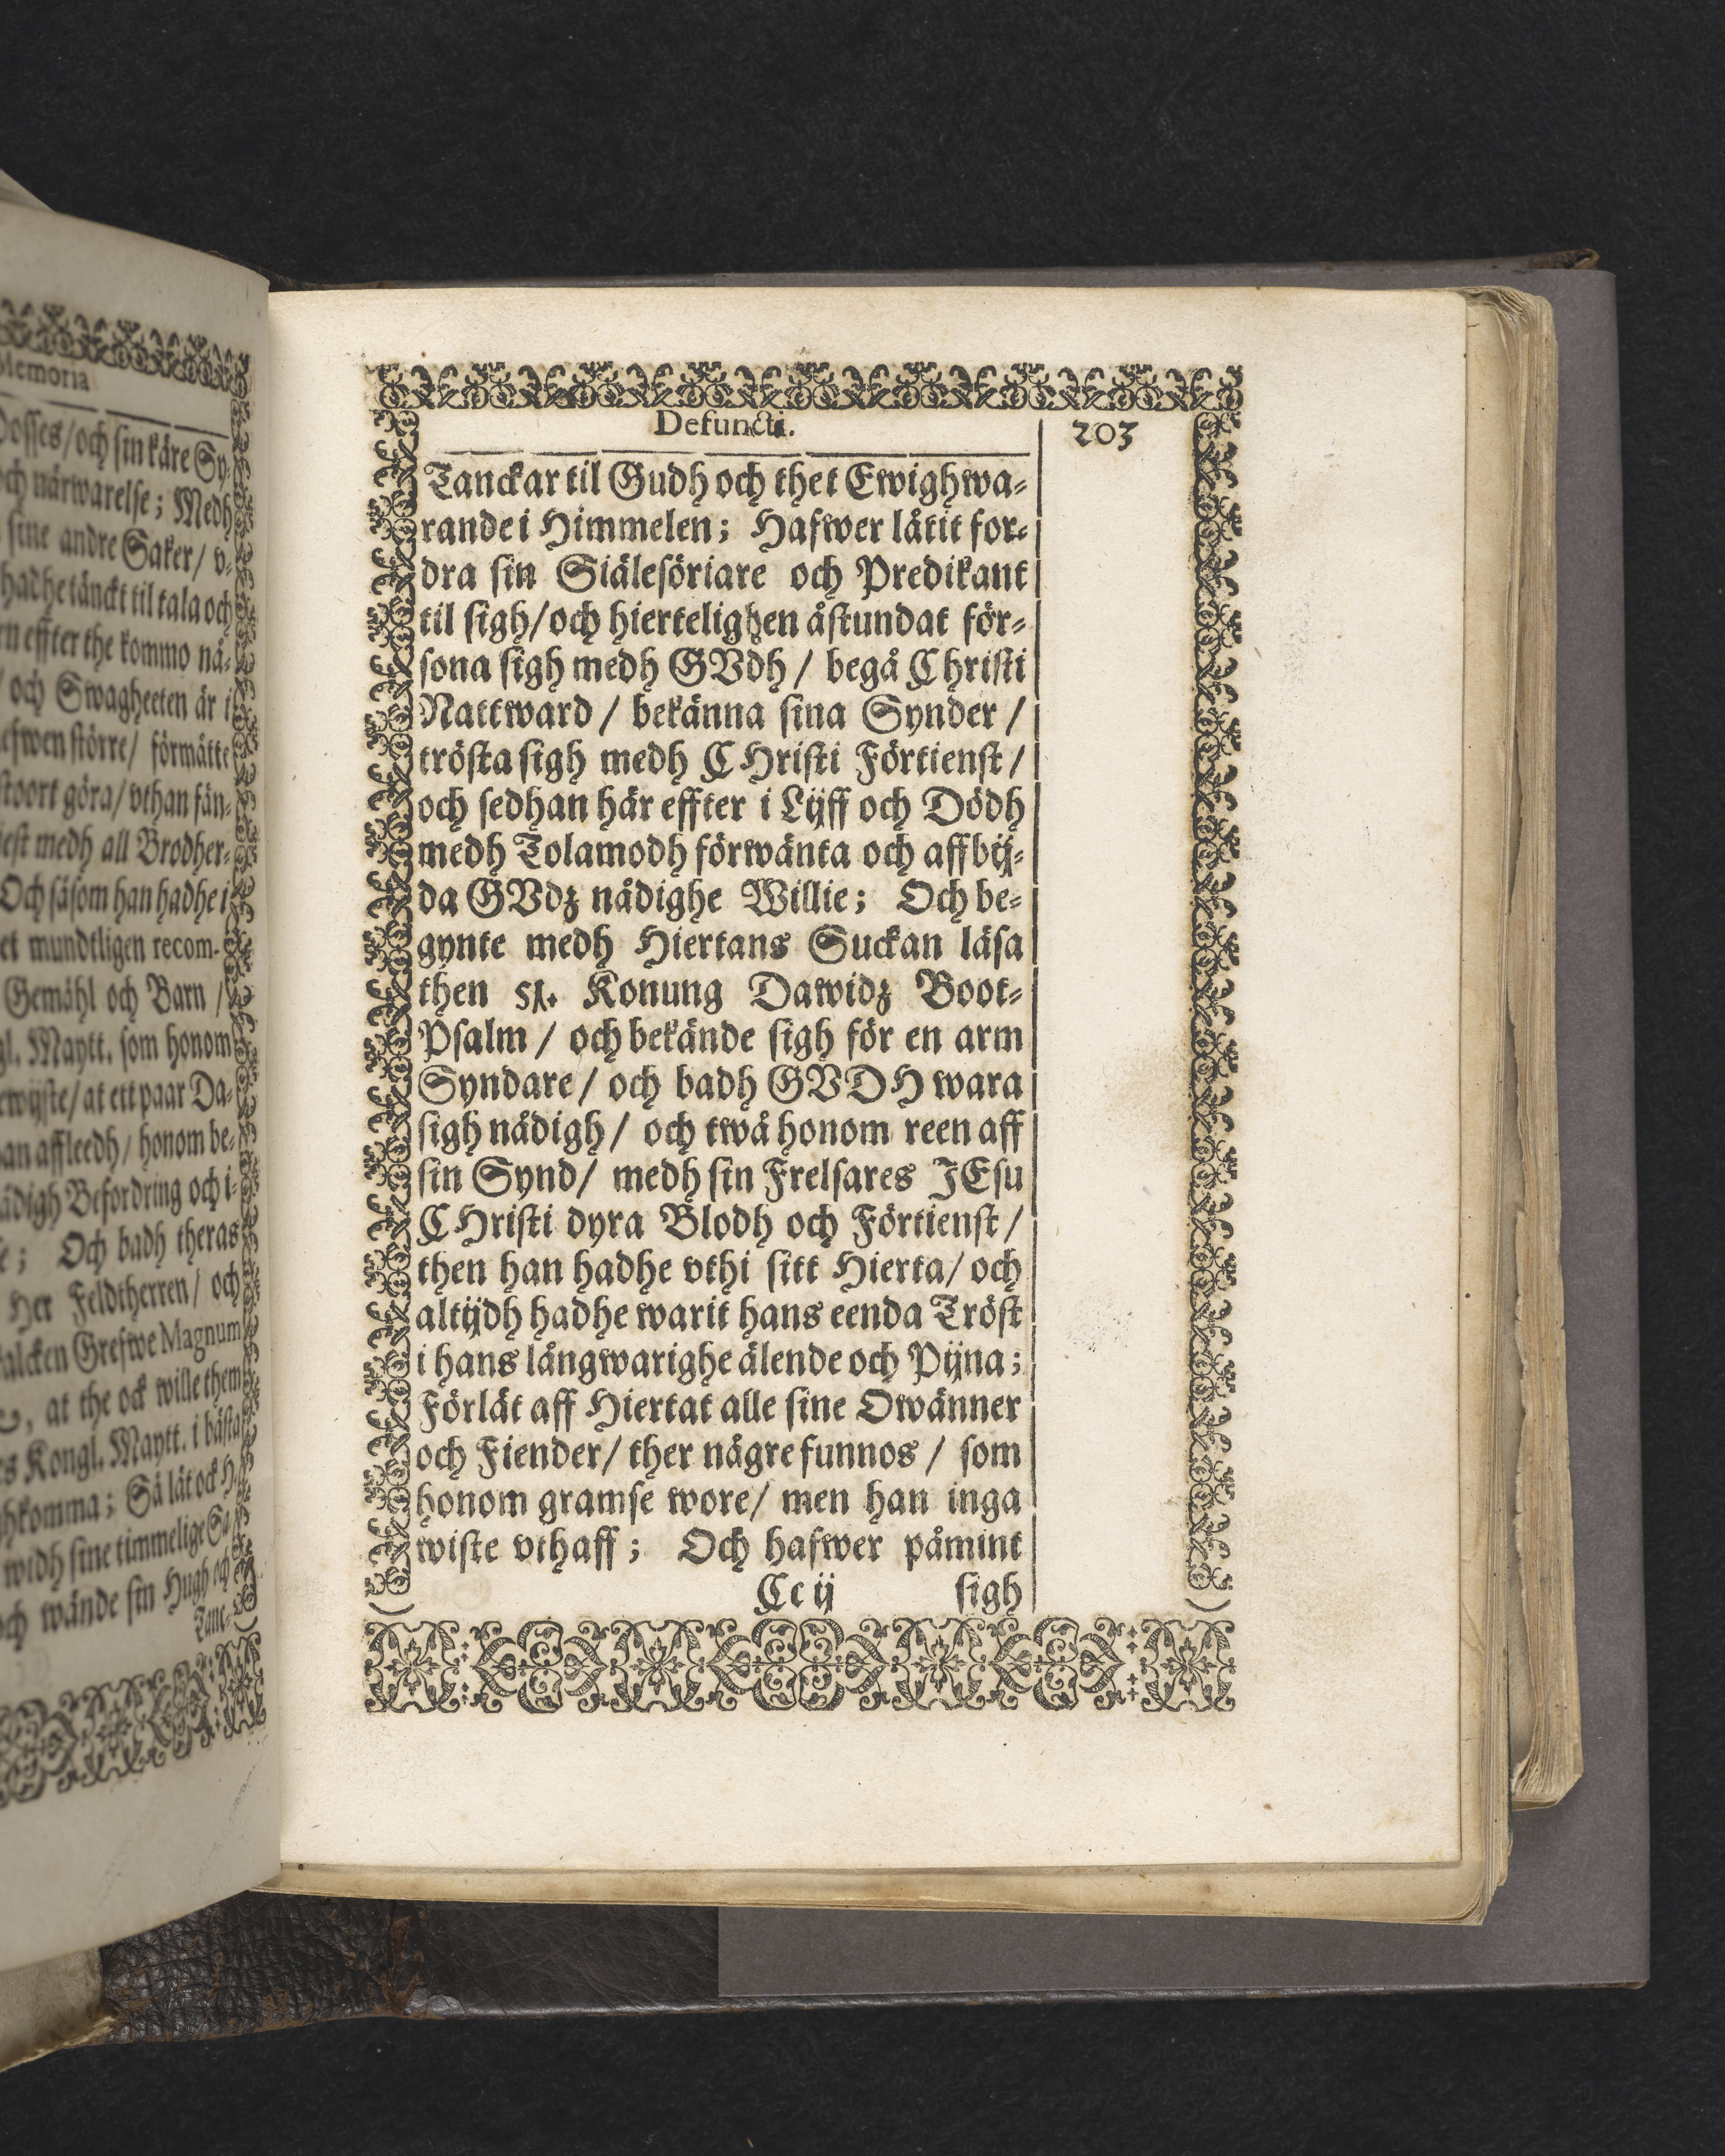 Memoria
Dosses/och sin käre Sy-
och närwarelse; Medh
sine andre Saker/ v-
hadhe tänckt til tala och
effter the kommo nå-
/ och Swagheeten är i
större/ förmåtte
stoort göra/ vthan
medh all Brodher-
Och såsom han hadhe i
mundtligen recom-
Gemähl och Barn /
Maytt. som honom
at ett paar Da-
affleedh/ honom be-
Befordring och i-
; Och badh theras
Her Feldtherren/ och
Grefwe Magnum
, at the ock wille them
Kongl. Maytt. i bästa
; Så lät ock H.
widh sine timmelige
wände sin Hugh och
Tanc-
Defuncti.
203
Tanckar til Gudh och thet Ewighwa-
rande i Himmelen; Hafwer låtit for-
dra sin Siälesöriare och Predikant
til sigh/och hiertelighen åstundat för-
sona sigh medh GVdh / begå Christi
Nattward / bekänna sina Synder /
trösta sigh medh CHristi Förtienst /
och sedhan här effter i Lijff och Dödh
medh Tolamodh förwänta och affbij-
da GVdz nådighe Willie; Och be-
gynte medh Hiertans Suckan läsa
then 51. Konung Dawidz Boot-
Psalm / och bekände sigh för en arm
Syndare / och badh GVDH wara
sigh nådigh / och twå honom reen aff
sin Synd/ medh sin Frelsares JEsu
CHristi dyra Blodh och Förtienst /
then han hadhe vthi sitt Hierta/ och
altijdh hadhe warit hans eenda Tröst
i hans långwarighe älende och Pijna;
Förlät aff Hiertat alle sine Owänner
och Fiender/ ther någre funnos / som
honom gramse wore/ men han inga
wiste vthaff; Och hafwer påmint
Cc ij sigh